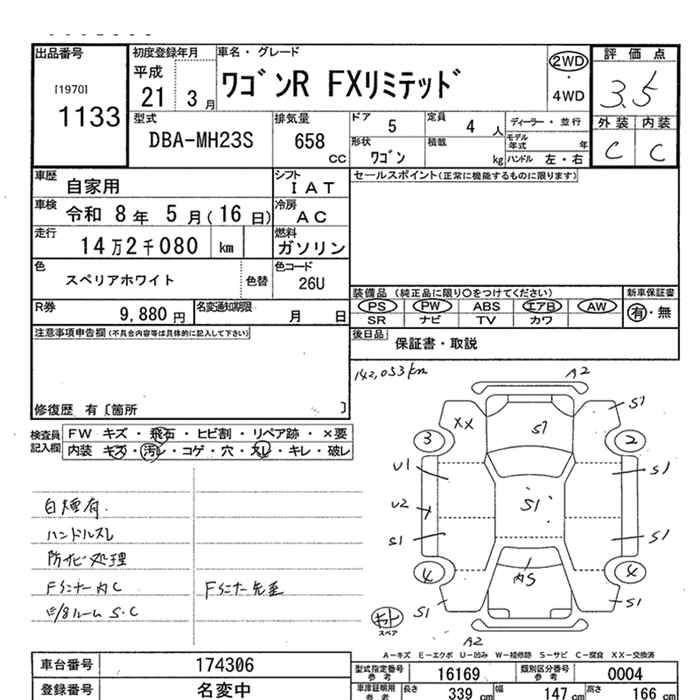 出品番号
[1970]
1133
初度登録年月
平成
21 3月
車名・グレード
ワゴンR FXリミテッド
2WD
・
4WD
評価点
3.5
外装 内装
C C
型式
DBA-MH23S
排気量
658
cc
ドア 5
定員 4 人
形状 ワゴン
積載 kg
ディーラー・並行
モデル年式 年
ハンドル 左・右
車歴 自家用
シフト IAT
車検 令和 8年 5月(16日)
冷房 AC
走行 14万2千080 km
燃料 ガソリン
色 スペリアホワイト
色替
色コード 26U
R券 9,880円
名変通知期限 月 日
セールスポイント(正常に機能するものに限ります)
装備品 (純正品に限り○をつけてください)
PS PW ABS エアB AW
SR ナビ TV カワ
新車保証書
有・無
後日品 保証書・取説
注意事項申告欄(不具合内容等は具体的に記入して下さい)
修復歴 有〔箇所 〕
検査員記入欄
FW キズ・飛石・ヒビ割・リペア跡・×要
内装 キズ・汚レ・コゲ・穴・スレ・キレ・破レ
142,053km
A2
S1
XX
S1
3
2
U1
S1
U2
S1
S1
S1
4
内S
4
S1
S1
A2
スペア
白煙有
ハンドルスレ
防サビ処理
Fミナー内C
Fミナー先歪
E/Bルーム S・C
A-キズ E-エクボ U-凹み W-補修跡 S-サビ C-腐食 XX-交換済
車台番号 174306
登録番号 名変中
型式指定番号 参考 16169
類別区分番号 参考 0004
車庫証明用 参考
長さ 339 cm
幅 147 cm
高さ 166 cm